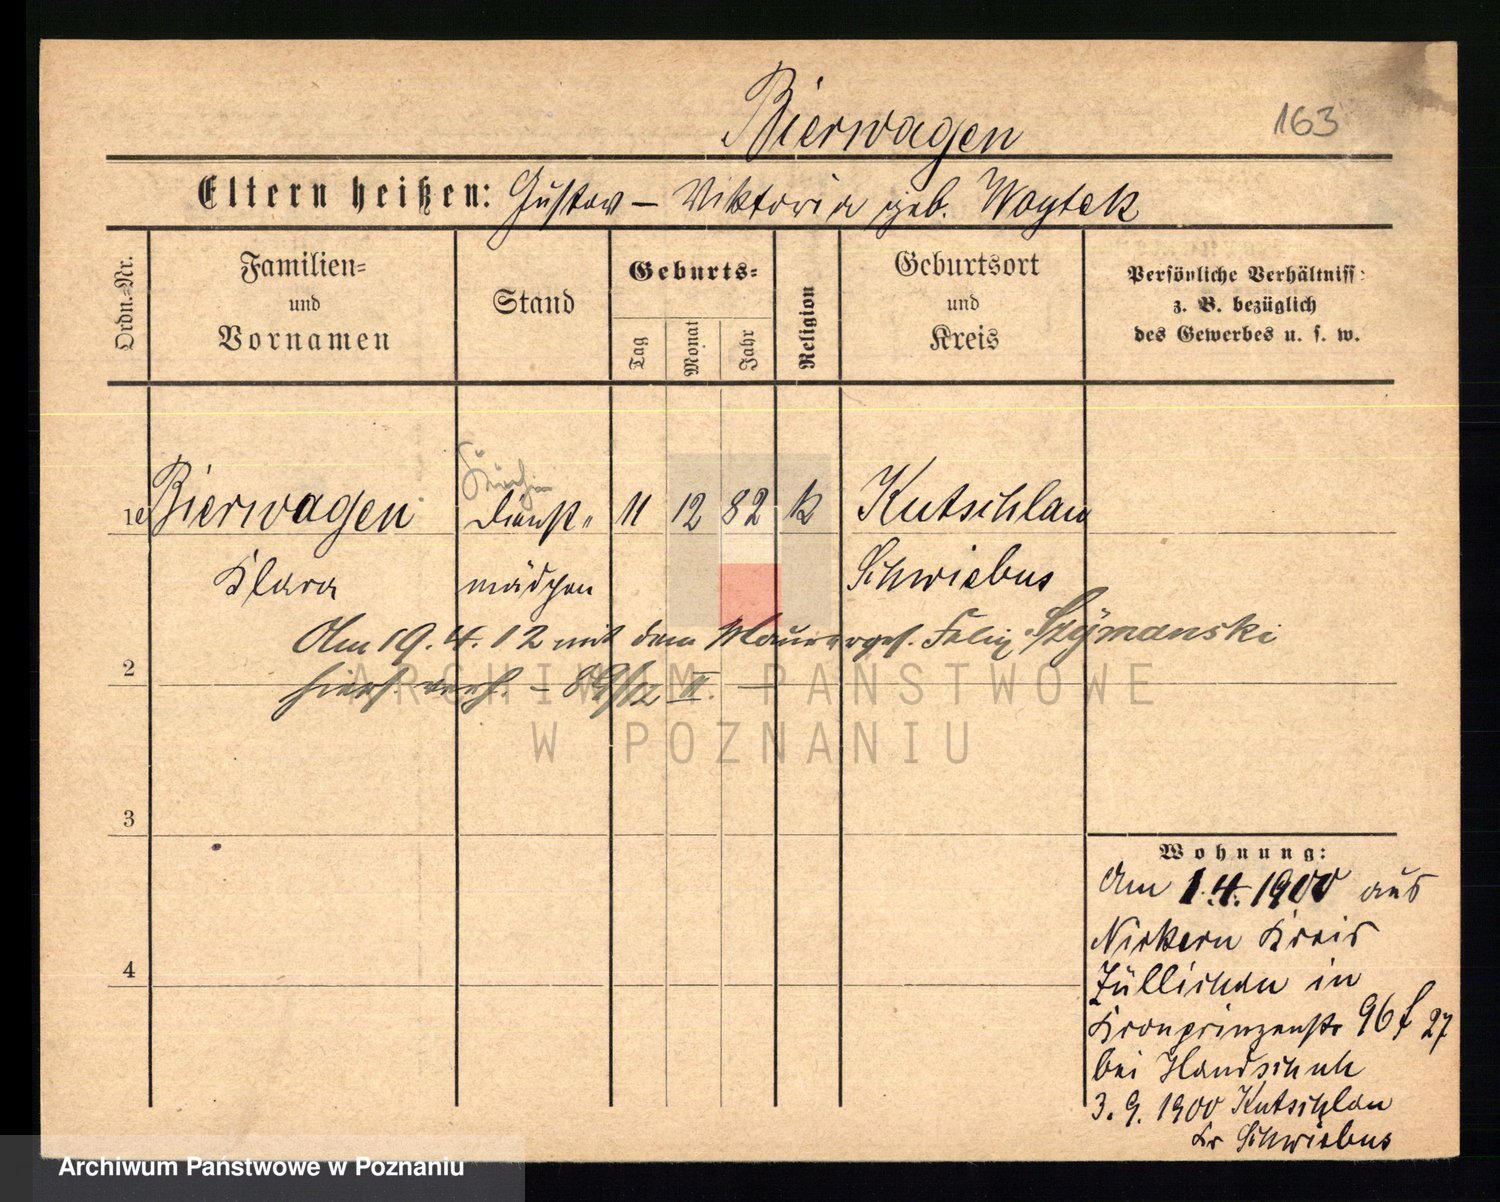 Bierwagen
163
Eltern heißen: Gustav – Viktoria geb. Woytek
Ordn.-Nr.
Familien-
und
Vornamen
Stand
Geburts-
Tag
Monat
Jahr
Religion
Geburtsort
und
Kreis
Persönliche Verhältniss:
z. B. bezüglich
des Gewerbes u. s. w.
1 Bierwagen Dienst- 11 12 82 k Kutschlau
Klara mädchen Schwiebus
Am 19.4.12 mit dem Maurerges. Felix Szymanski
2
hiers. verh. – 89/12 II. –
ARCHIWUM PAŃSTWOWE
W POZNANIU
3
4
Wohnung:
Am 1.4.1900 aus
Kreis
Züllichau in
Kronprinzenstr 96 f 27
bei Handschuh
3.9.1900 Kutschlau
Kr Schwiebus
Archiwum Państwowe w Poznaniu